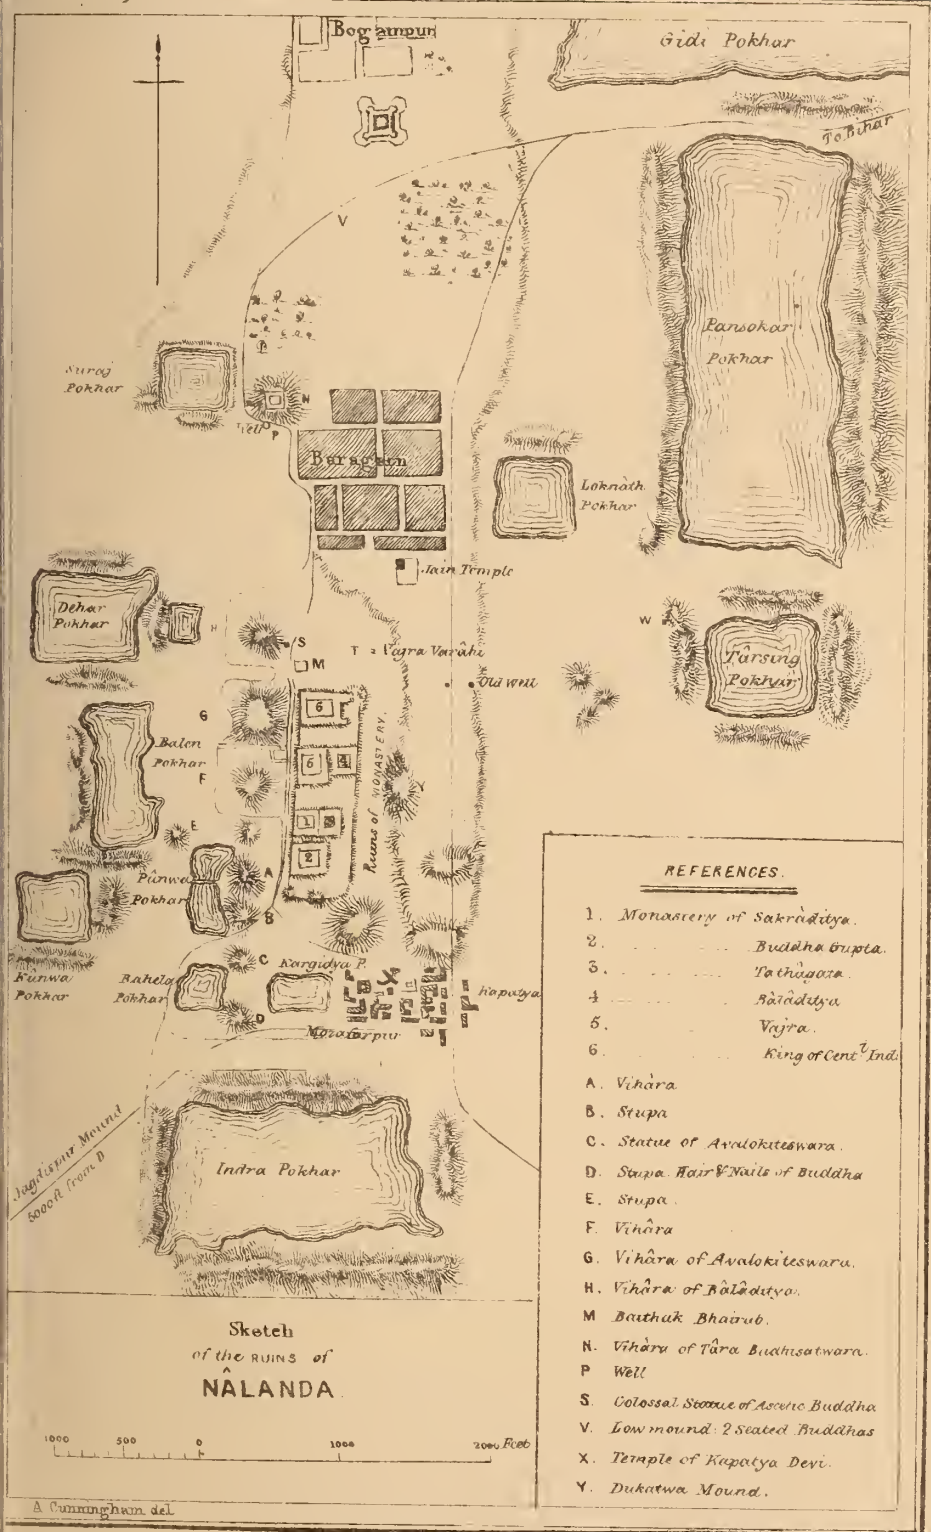 Bogampur
Gidi Pokhar
To Bihar
V
Pansokar
Pokhar
Suraj
Pokhar
N
Well
P
Baragaon
Loknàth
Pokhar
Jain Temple
Dehar
Pokhar
H
S
M
T
Vajra Varâhi
Old well
W
Târsing
Pokhar
G
6
Balen
Pokhar
F
5
4
Ruins of MONASTERY.
Y
E
1
2
Pûnwa
Pokhar
A
B
C
Kargidya P.
Kûnwa
Pokhar
Rahela
Pokhar
X
Kapatya
D
Mozafarpur
Jagdispur Mound
5000 ft from D
Indra Pokhar
REFERENCES.
1. Monastery of Sakràditya.
2. Buddha Gupta.
3. Tathâgata
4 Bàlâditya
5. Vajra.
6. King of Centl Indi
A. Vihàra
B. Stupa
C. Statue of Avalokiteswara.
D. Stupa. Hair & Nails of Buddha
E. Stupa.
F. Vihâra
G. Vihâra of Avalokiteswara.
H. Vihâra of Bàlâditya.
M Baithak Bhairab.
N. Vihàra of Târa Budhisatwara.
P Well
S. Colossal Statue of Ascetic Buddha
V. Low mound: 2 Seated Buddhas
X. Temple of Kapatya Devi.
Y. Dukatwa Mound.
Sketch
of the RUINS of
NÂLANDA.
1000 500 0 1000 2000 Feet
A Cunningham del